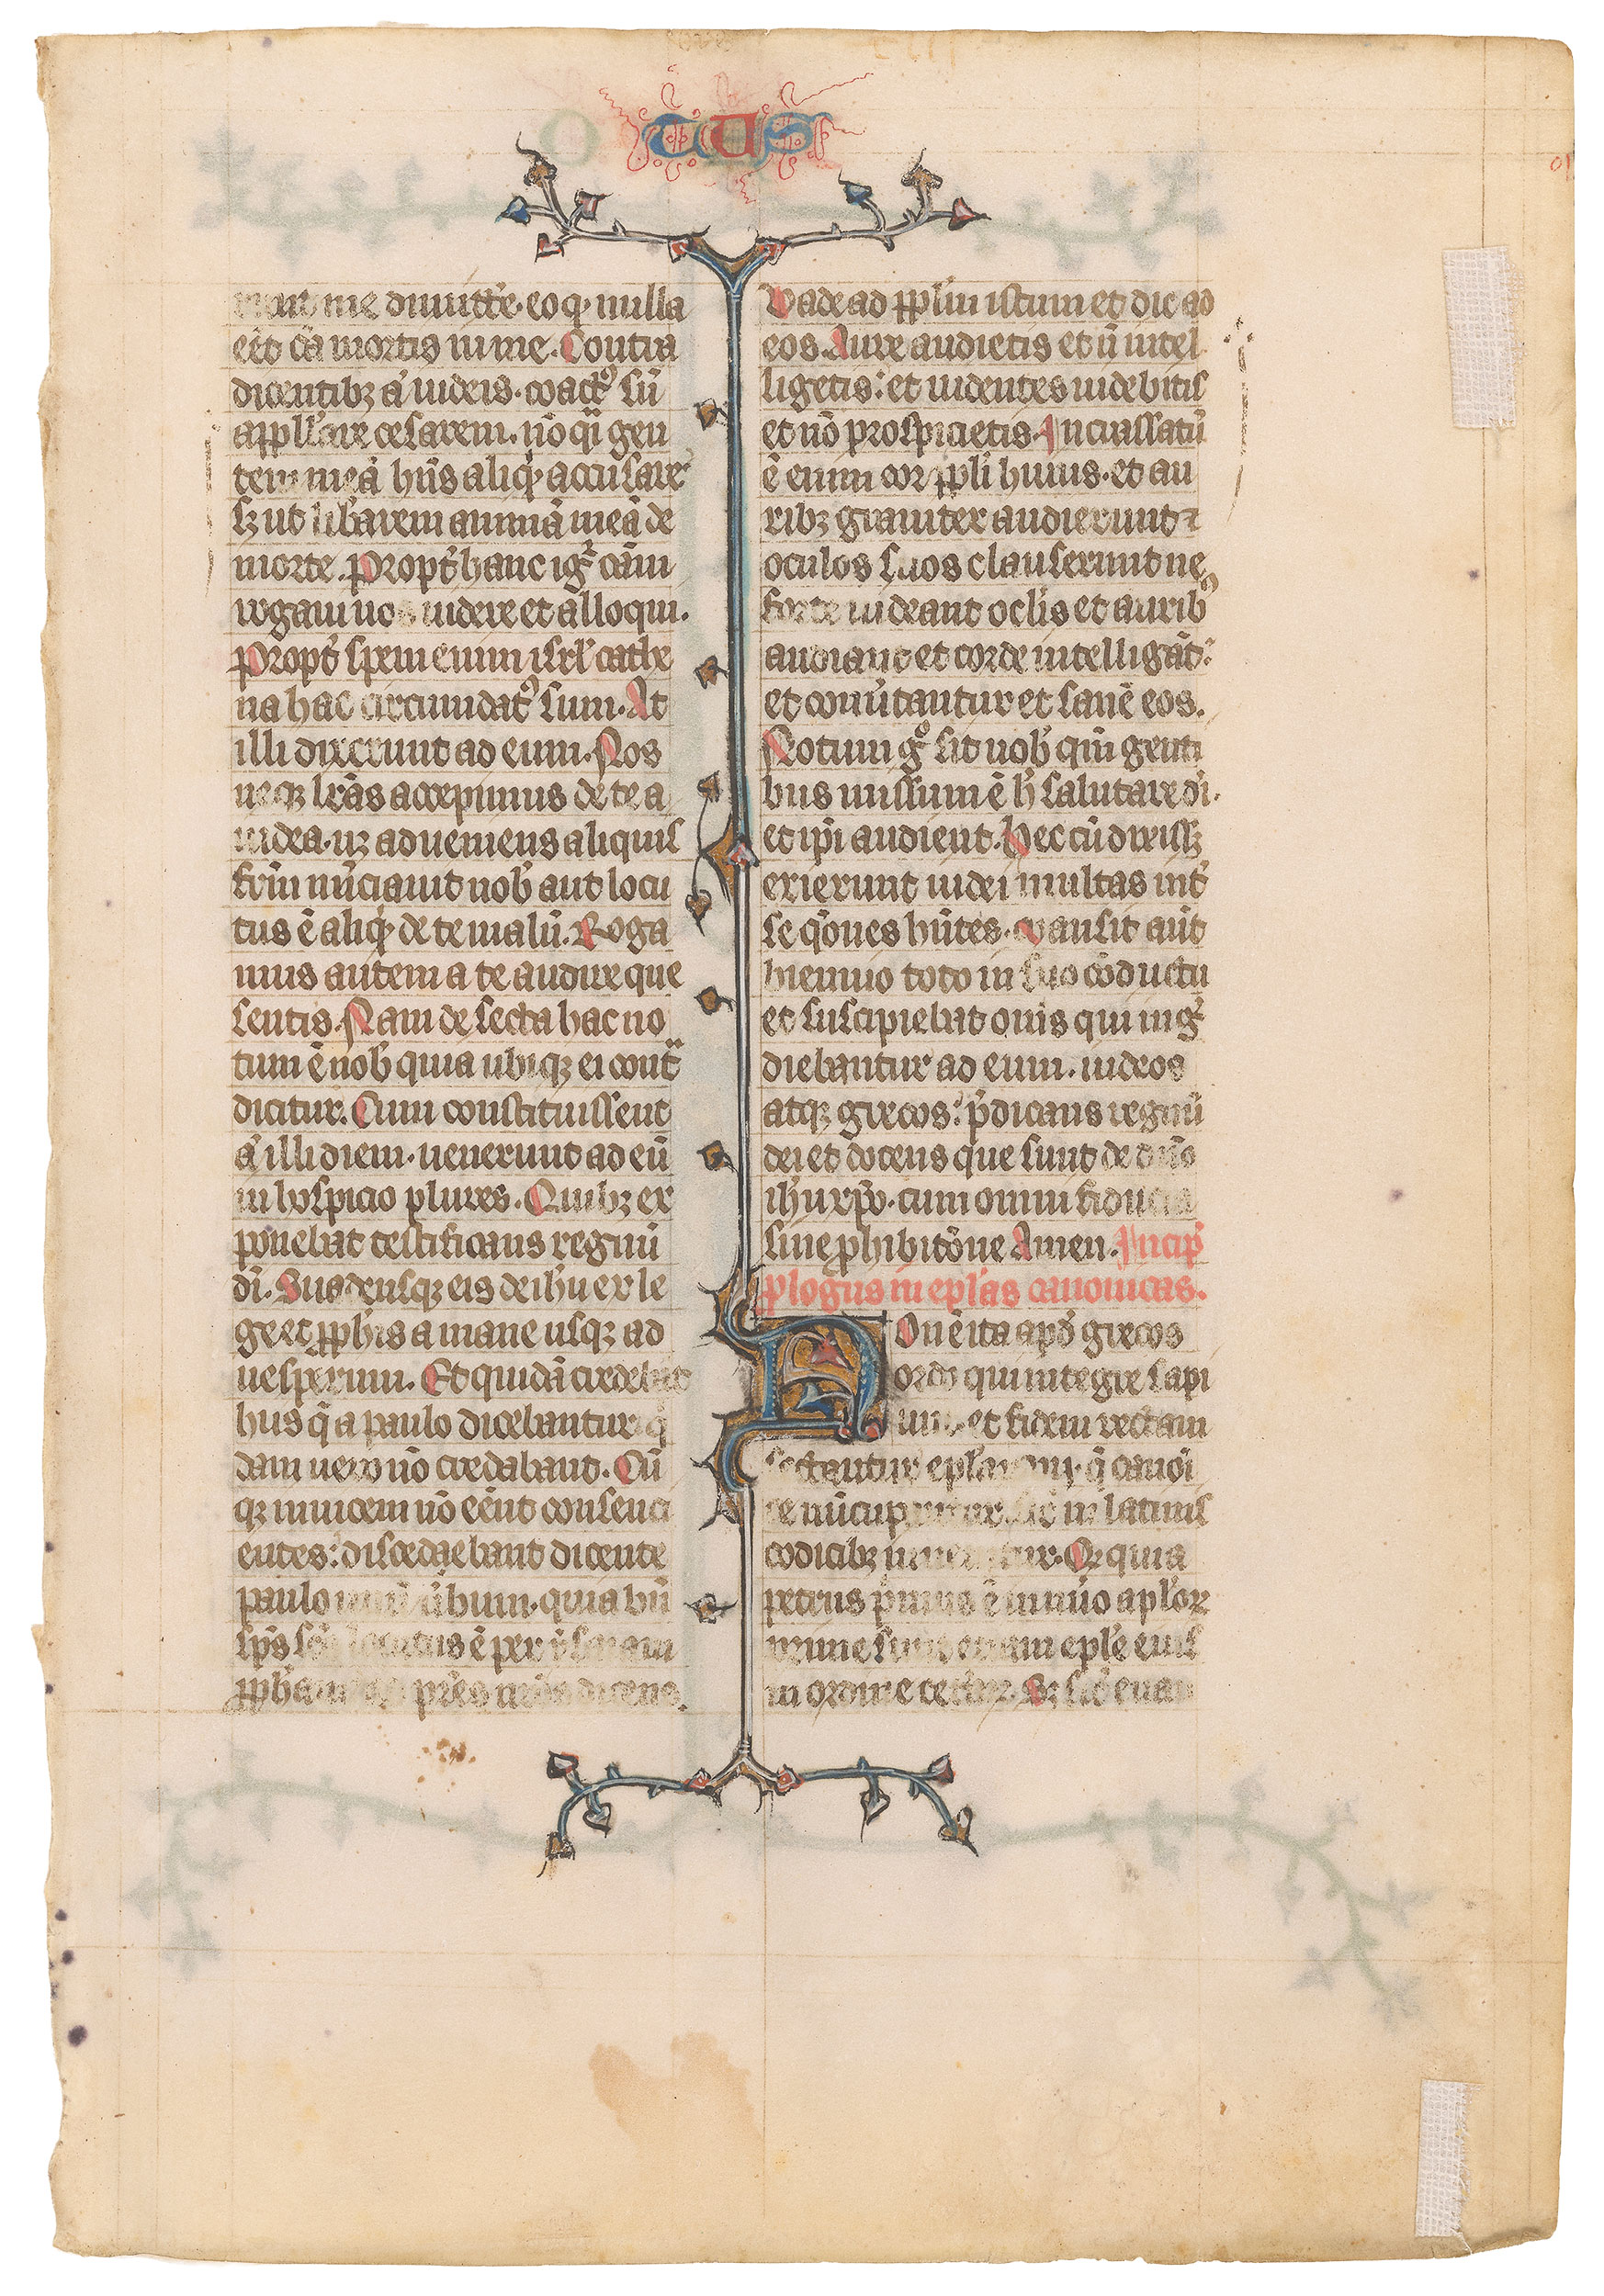 TUS
me dimitte͛. eo ꝙ nulla
eẽt cã mortis in me. Contra
dicentibꝫ aũ iudeis. coactꝰ sũ
appll’are cesarem. nõ qͣi gen
tem meã hñs aliqͥd accusare
sꝫ ut lib̾arem animã meã de
morte. Propt̾ hanc igͥ cãm
rogaui uos uidere et alloqui.
Propt̾ spem enim isrl’ cathe
na hac circumdatꝰ sum. At
illi dixerunt ad eum. Nos
neqꝫ lr̃as accepimus de te a
iudea. nꝫ adueniens aliquis
frm̃ nũciauit nob̾ aut locu
tus ẽ aliqͥd de te malũ. Roga
mus autem a te audire que
sentis. Nam de secta hac no
tum ẽ nob̾ quia ubiqꝫ ei contͣ
dicitur. Cum constituissent
aũ illi diem. uenerunt ad eũ
in hospicio plures. Quibꝫ ex
ponebat testificans regnũ
di͂. Suadensqꝫ eis de ih̾u ex le
ge et ꝓph̾is a mane usqꝫ ad
uesperum. Et quidã credebãt
hus q̃ a paulo dicebantur. qͥ
dam uero nõ credabant. Cũ
qꝫ inuicem nõ eẽnt consenci
entes: discedaebant dicente
paulo u̾bum. quia bñ
sp̃s sc̃s locutus ẽ per ysaiam
ꝓph̾am ad pr̃es nr̃os dicens.
Vade ad ppl’m istum et dic ad
eos. Aure audietis et ñ intel
ligetis: et uidentes uidebitis
et nõ prospicietis. Incrassatũ
ẽ enim cor ppl’i huius. et au
ribꝫ grauiter audierunt ⁊
oculos suos clauserunt ne
forte uideant ocl’is et auribꝰ
audiant et corde intelligãt:
et conu̾tantur et sanẽ eos.
Notum gͦ sit uob̾ qm̃ genti
bus missum ẽ h̾ salutare di͂.
et ip̃i audient. Hec cũ dixissꝫ
exierunt iudei multas int̾
se q̃ones hñtes. Mansit aũt
biennio toto in suo cõductu
et suscipiebat om̃s qui ingͥ
diebantur ad eum. iudeos
atqꝫ grecos: p̃dicans regnũ
dei et docens que sunt de dño
ih̾u xp̃o. cum omni fiducia
sine ꝓhibitõne Amen. Incip̾
ꝓlogus in epl’as canonicas.
Non ẽ ita apd̾ grecos
ordo qui integre sapi
unt. et fidem rectam
sectantur epl’arum. q̃ canoĩ
ce nũcupantur. sic̃ in latinis
codicibꝫ inuenitur. Qꝫ quia
petrus p̾mus ẽ in nũo apl’oꝝ
prime sunt etiam epl’e eius
in ordine ceteꝝ. Sꝫ sic̃ euan